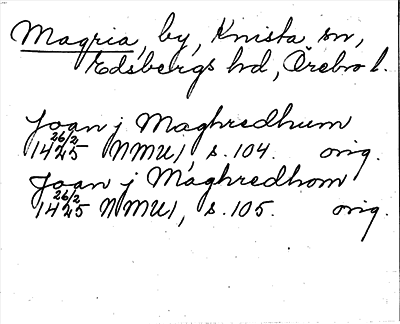 Magria, by, Knista sn,
Edsbergs hd, Örebro l.
Joan j Maghredhum
26/2
1425 NMU1, s. 104. orig.
Joan j Maghredhom
26/2
1425 NMU1, s. 105. orig.